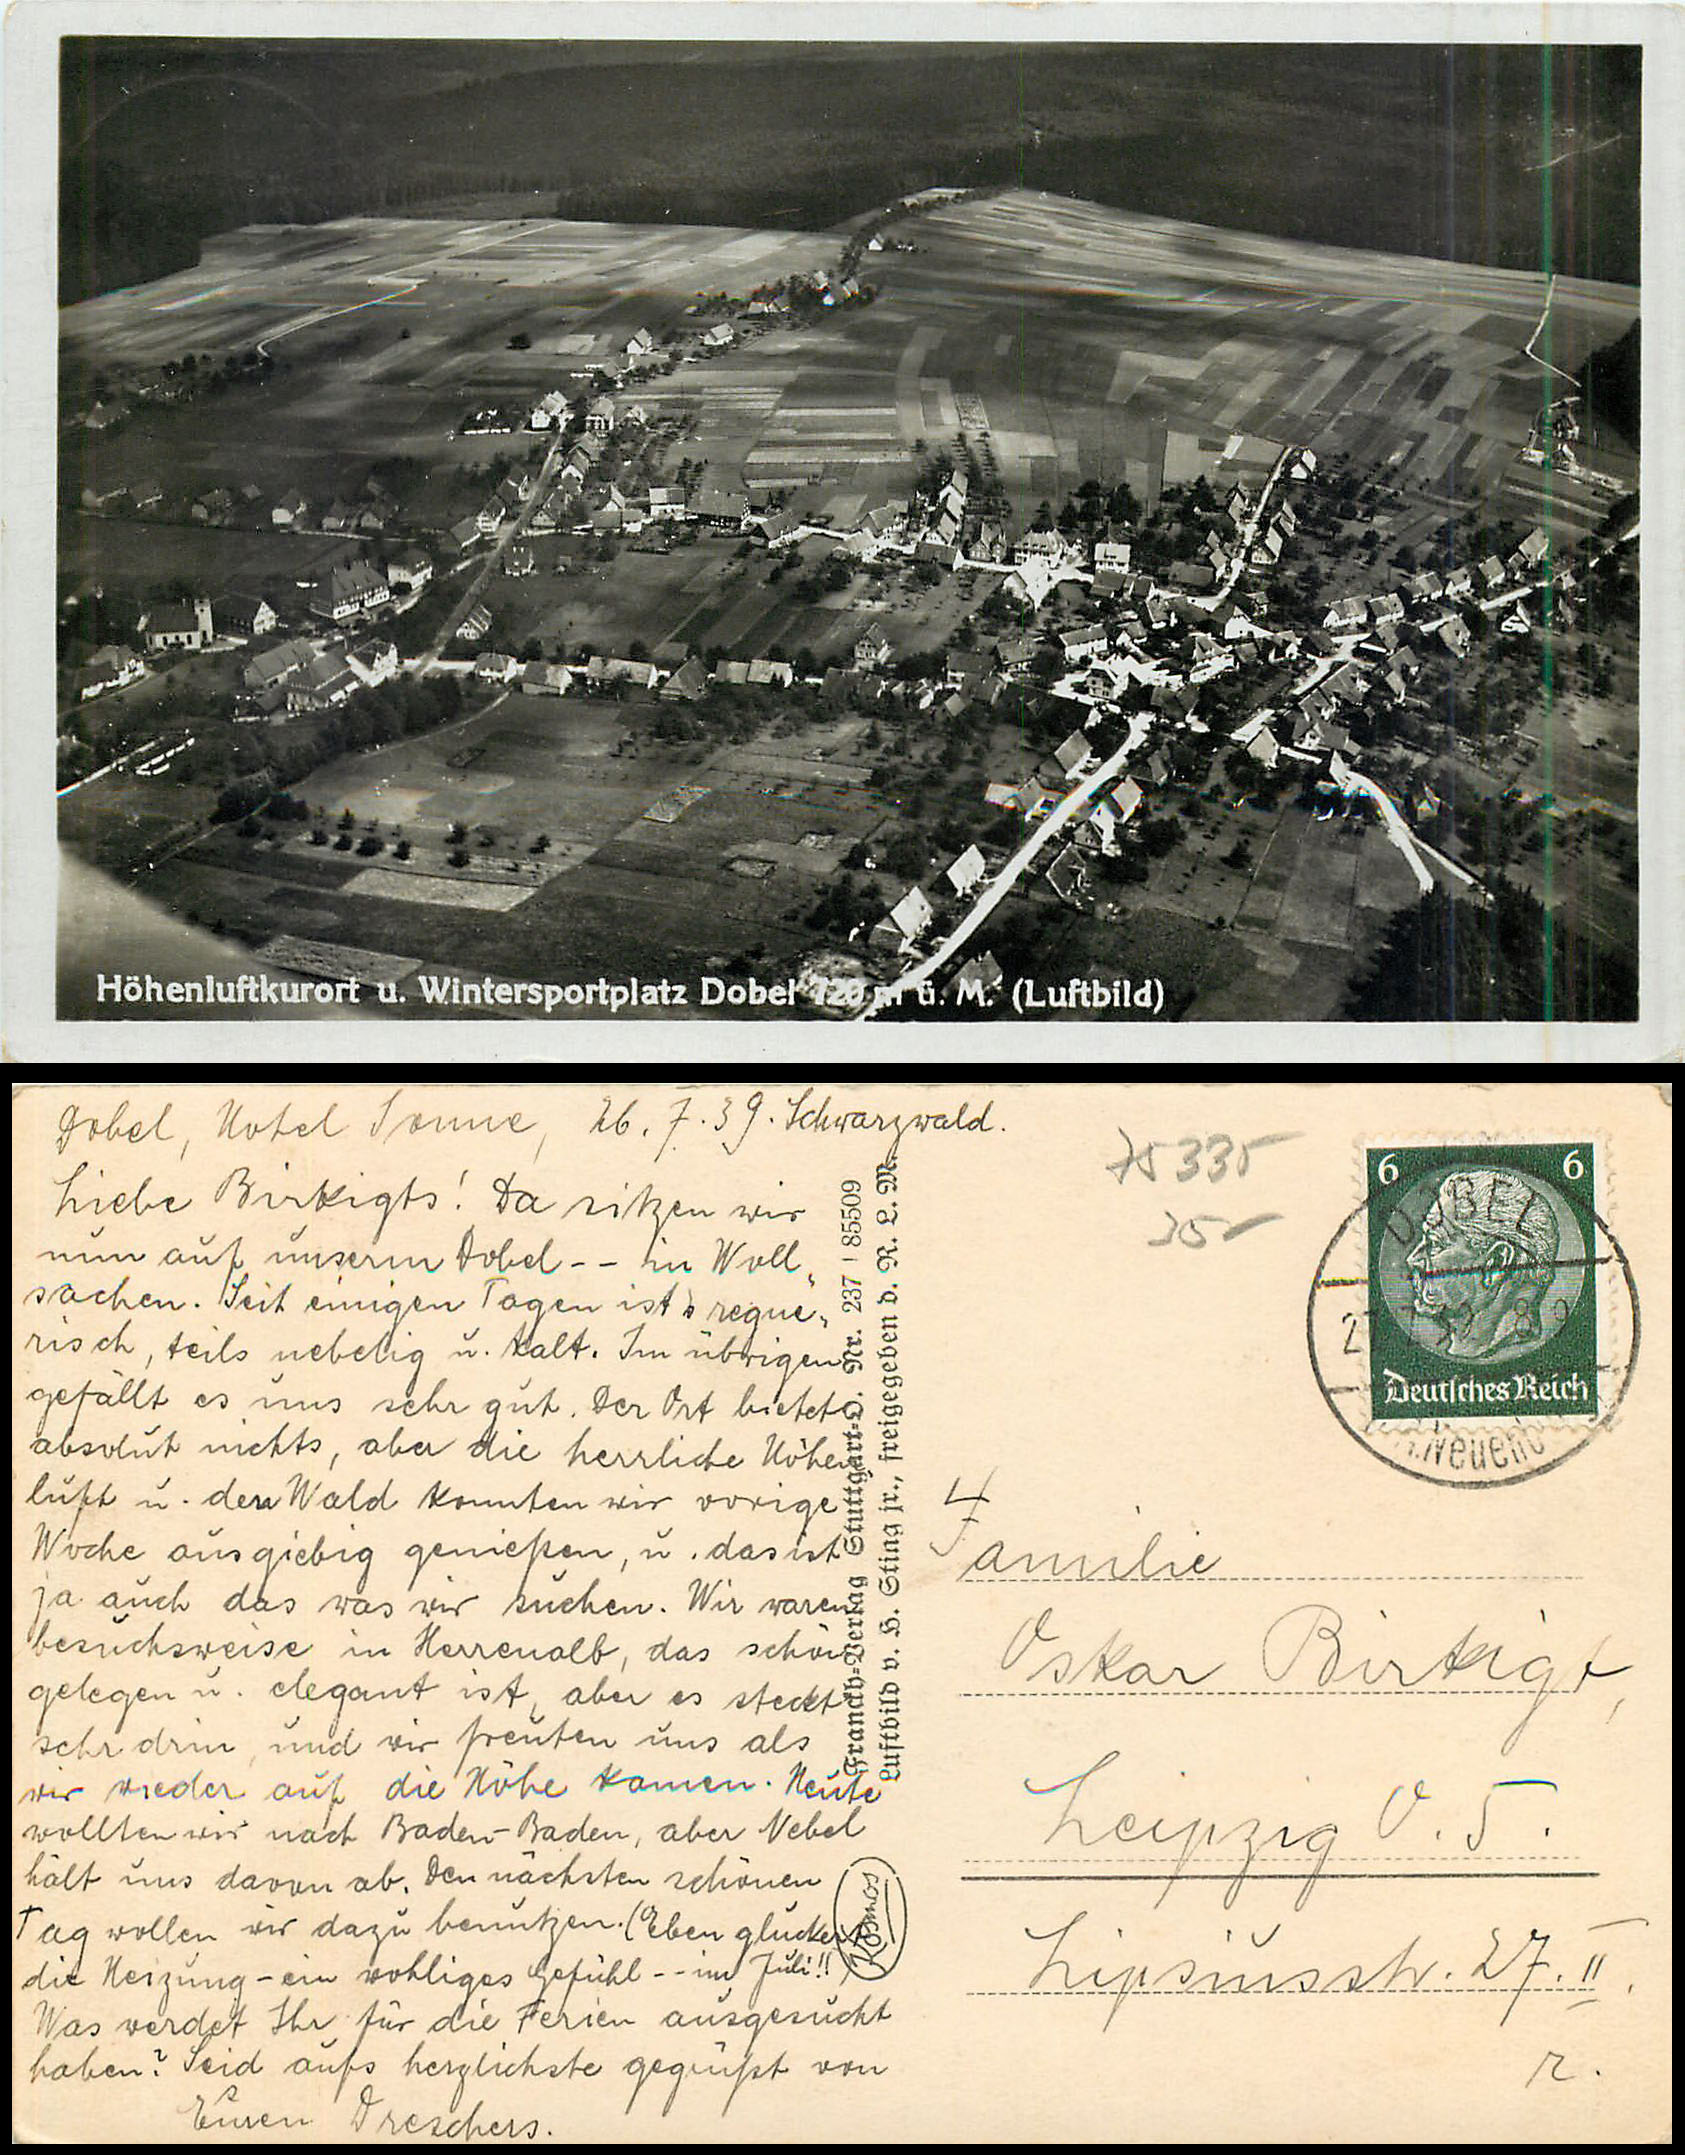 Höhenluftkurort u. Wintersportplatz Dobel 720 m ü. M. (Luftbild)
Dobel, Hotel Sonne, 26.7.39. Schwarzwald.
Liebe Birkigts! Da sitzen wir
nun auf unserm Dobel -- in Woll„
sachen. Seit einigen Tagen ist's regne„
risch, teils nebelig u. kalt. Im übrigen
gefällt es uns sehr gut. Der Ort bietet
absolut nichts, aber die herrliche Höhen
luft u. den Wald konnten wir vorige
Woche ausgiebig genießen, u. das ist
ja auch das was wir suchen. Wir waren
besuchsweise in Herrenalb, das schön
gelegen u. elegant ist, aber es steckt
sehr drin, und wir freuten uns als
wir wieder auf die Höhe kamen. Heute
wollten wir nach Baden-Baden, aber Nebel
hält uns davon ab. Den nächsten schönen
Tag wollen wir dazu benutzen. (Eben gluckert
die Heizung - ein wohliges Gefühl -- im Juli!!)
Was werdet Ihr für die Ferien ausgesucht
haben? Seid aufs herzlichste gegrüßt von
Euren Dreschers.
Franckh-Verlag Stuttgart-O. Nr. 237 / 85509
Luftbild v. H. Sting jr., freigegeben d. R. L. M.
Kosmos
75335
35-
6 6
Deutsches Reich
DOBEL
Familie
Oskar Birkigt,
Leipzig O. 5.
Lipsiusstr. 27. II.
r.